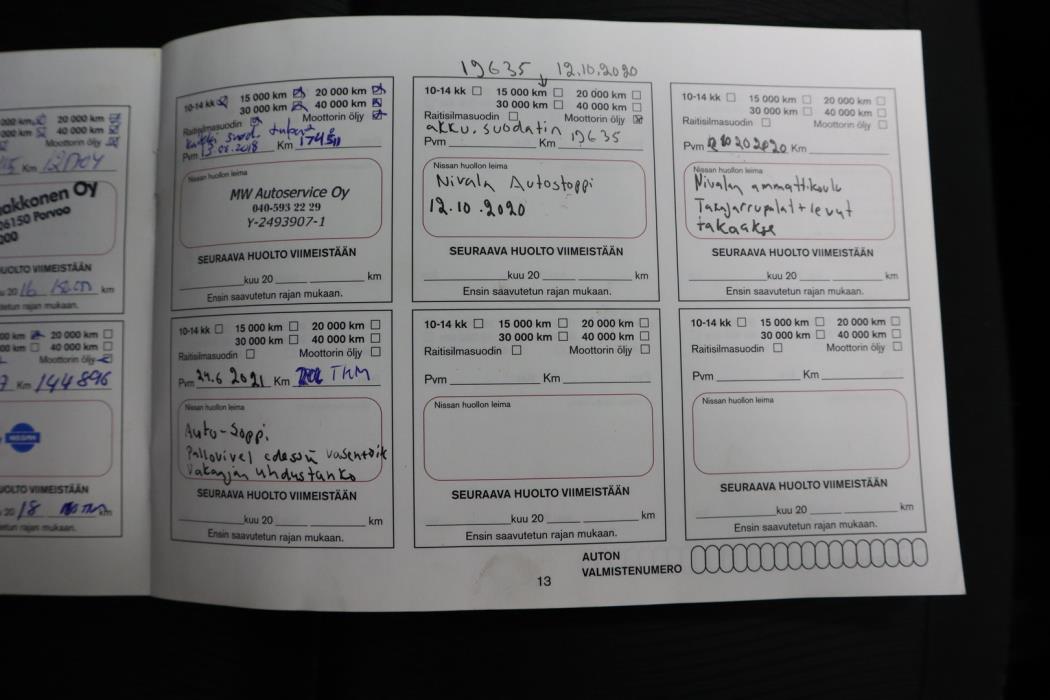 19635 12.10.2020
20 000 km
40 000 km
Moottorin öljy
Km
akkonen Oy
06150 Porvoo
HUOLTO VIIMEISTÄÄN
20 16 km
tetun rajan mukaan.
10-14 kk 15 000 km 20 000 km
30 000 km 40 000 km
Raitisilmasuodin Moottorin öljy
Pvm 13.08.2018 Km
Nissan huollon leima
MW Autoservice Oy
040-593 22 29
Y-2493907-1
SEURAAVA HUOLTO VIIMEISTÄÄN
kuu 20 km
Ensin saavutetun rajan mukaan.
10-14 kk 15 000 km 20 000 km
30 000 km 40 000 km
Raitisilmasuodin Moottorin öljy
akku. suodatin 19635
Pvm Km
Nissan huollon leima
Nivala Autostoppi
12.10.2020
SEURAAVA HUOLTO VIIMEISTÄÄN
kuu 20 km
Ensin saavutetun rajan mukaan.
10-14 kk 15 000 km 20 000 km
30 000 km 40 000 km
Raitisilmasuodin Moottorin öljy
Pvm Km
Nissan huollon leima
Nivalan ammattikoulu
Takajarrupalat + levyt
takaakse
SEURAAVA HUOLTO VIIMEISTÄÄN
kuu 20 km
Ensin saavutetun rajan mukaan.
00 km 20 000 km
00 km 40 000 km
Moottorin öljy
144896
NISSAN
HUOLTO VIIMEISTÄÄN
20 18 km
tetun rajan mukaan.
10-14 kk 15 000 km 20 000 km
30 000 km 40 000 km
Raitisilmasuodin Moottorin öljy
Pvm 24.6 2021 Km TKM
Nissan huollon leima
Auto-Soppi
Pallonivel edessä vasen+oik
Vakaajan yhdystanko
SEURAAVA HUOLTO VIIMEISTÄÄN
kuu 20 km
Ensin saavutetun rajan mukaan.
10-14 kk 15 000 km 20 000 km
30 000 km 40 000 km
Raitisilmasuodin Moottorin öljy
Pvm Km
Nissan huollon leima
SEURAAVA HUOLTO VIIMEISTÄÄN
kuu 20 km
Ensin saavutetun rajan mukaan.
10-14 kk 15 000 km 20 000 km
30 000 km 40 000 km
Raitisilmasuodin Moottorin öljy
Pvm Km
Nissan huollon leima
SEURAAVA HUOLTO VIIMEISTÄÄN
kuu 20 km
Ensin saavutetun rajan mukaan.
AUTON
VALMISTENUMERO
13